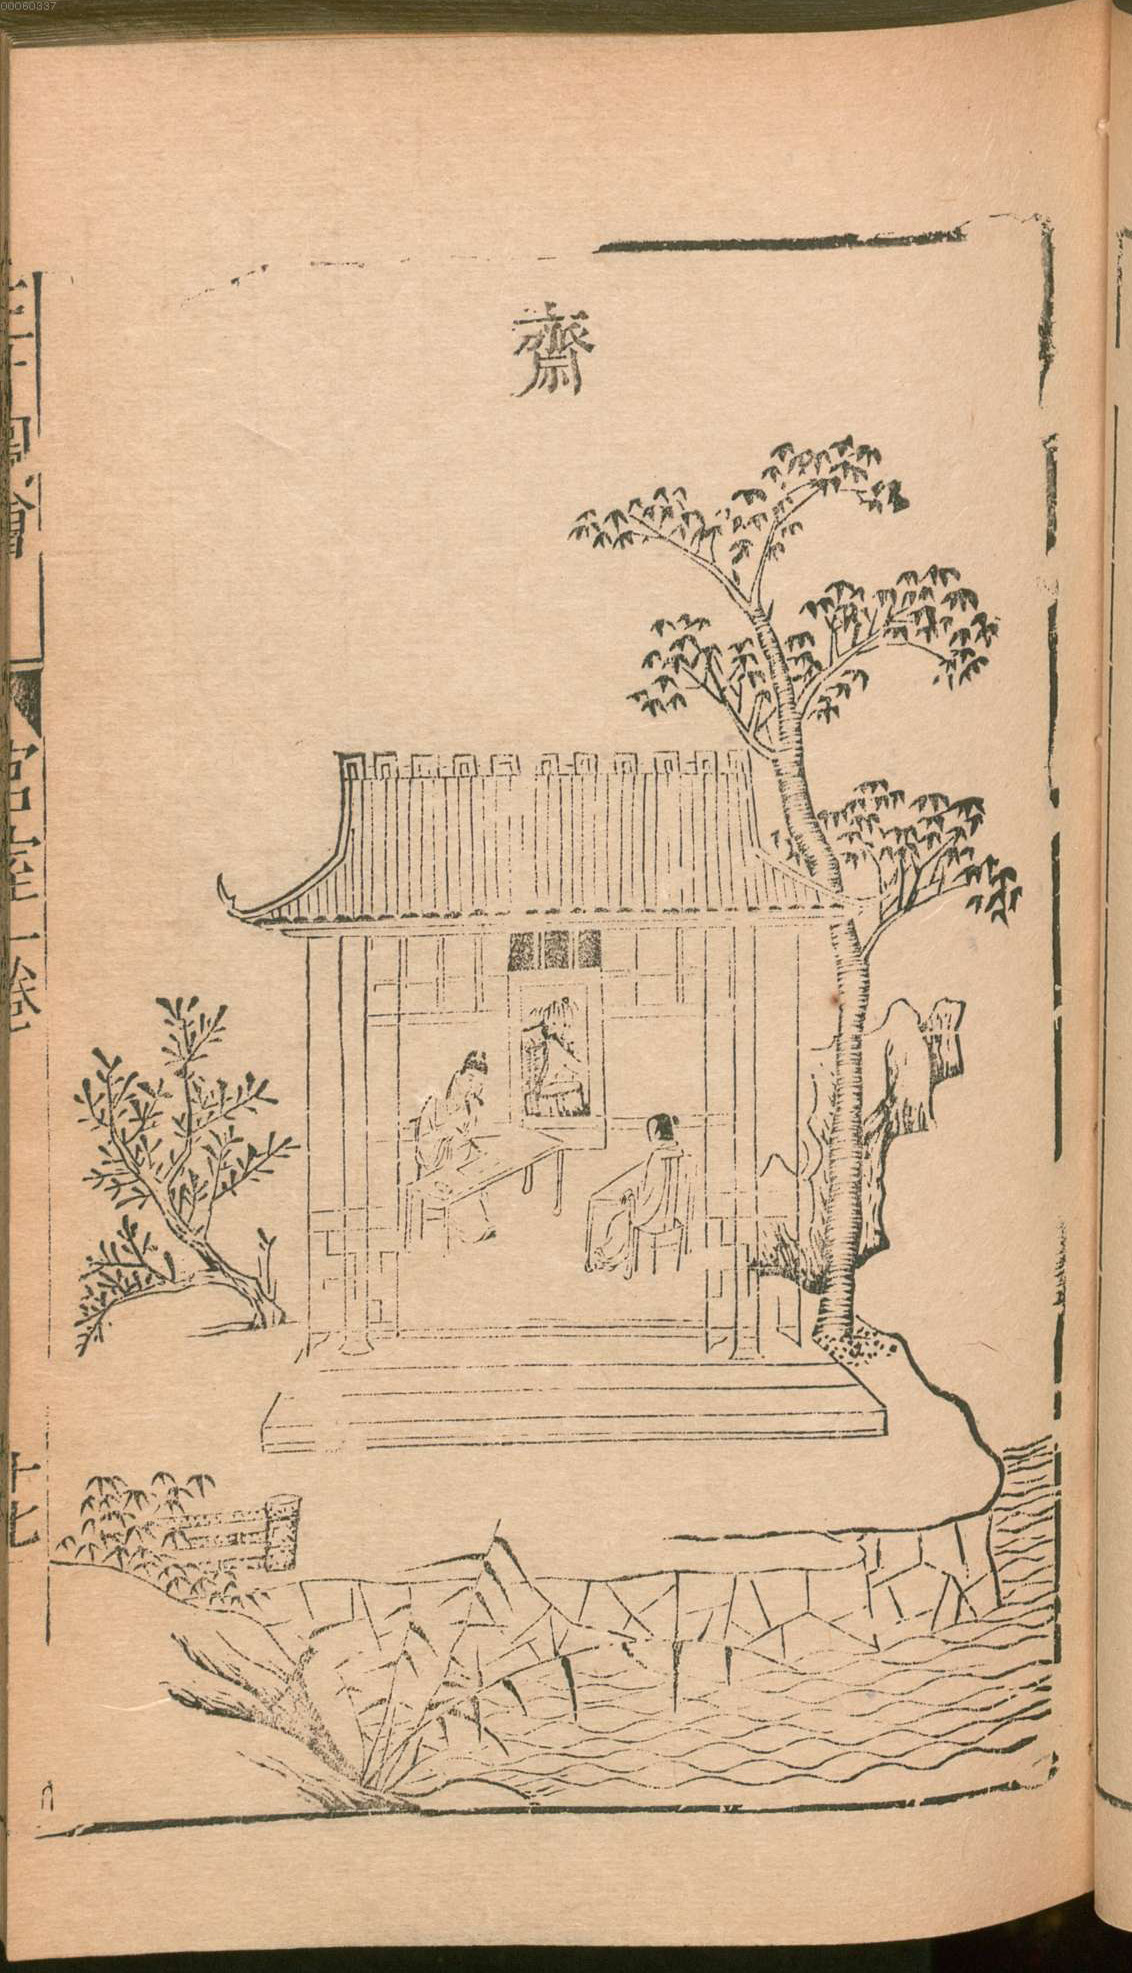 00060337
齋
三才圖會
宮室一卷
十七